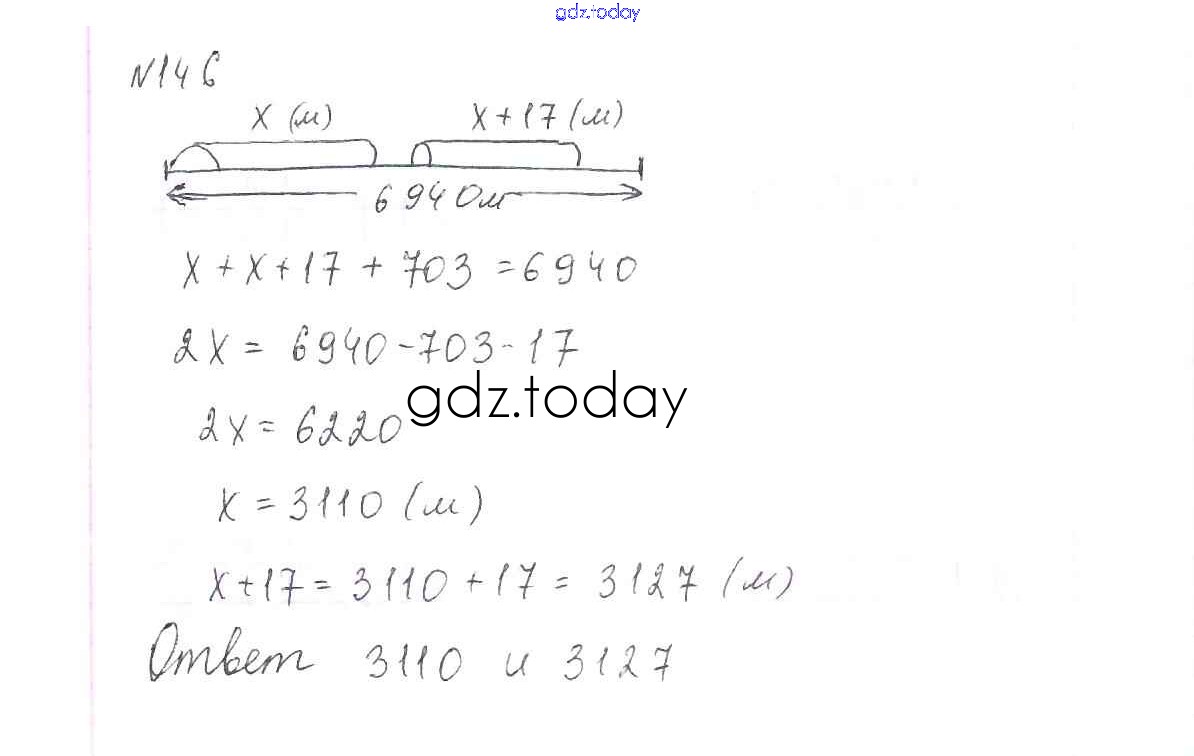 gdz.today
N146
x (м) x+17 (м)
6940м
x+x+17+703=6940
2x=6940-703-17
2x=6220
gdz.today
x=3110 (м)
x+17=3110+17=3127 (м)
Ответ 3110 и 3127